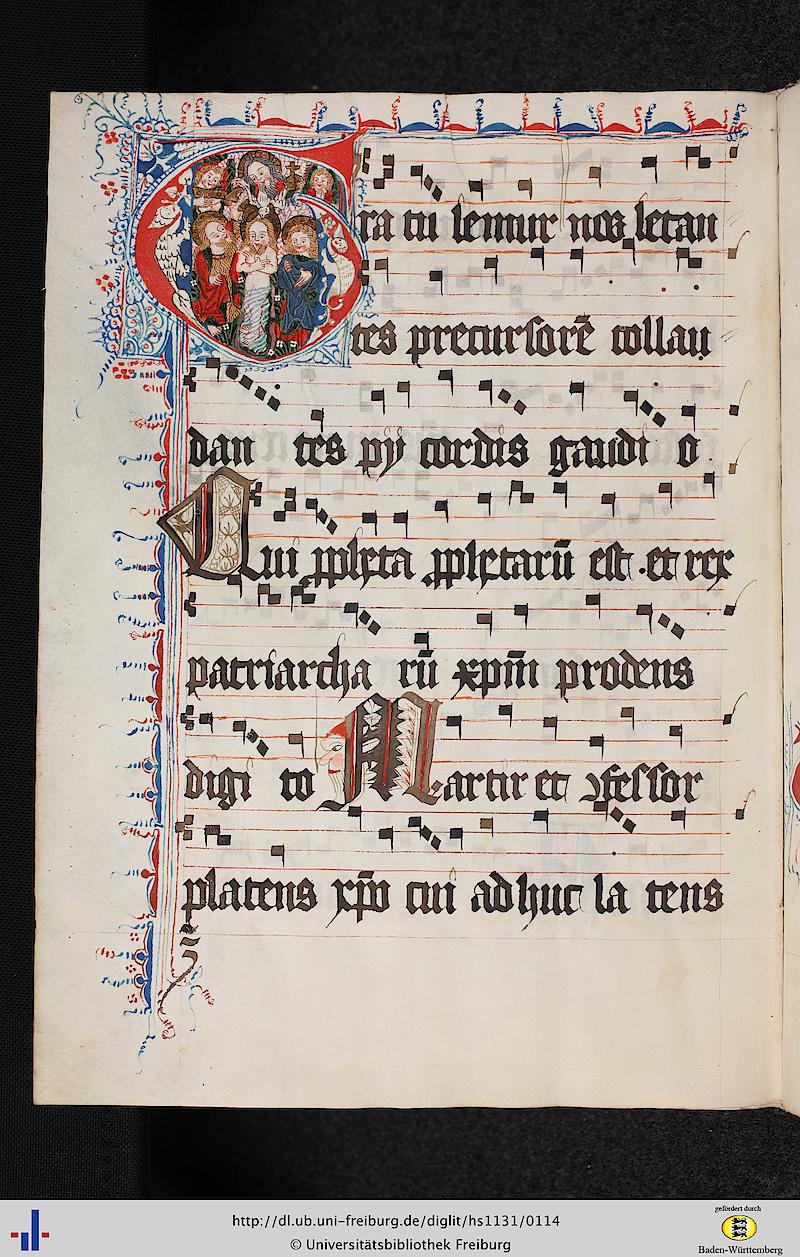 Gra tu lemur nos letan
tes precursorē collau
dan tes py cordis gaudi o
Qui ꝓpheta ꝓphetarū est . et rex
patriarcha rū xp̄m prodens
digi to Martir et ꝯfessor
platens xp̄o cui adhuc la tens
http://dl.ub.uni-freiburg.de/diglit/hs1131/0114
© Universitätsbibliothek Freiburg
gefördert durch
Baden-Württemberg